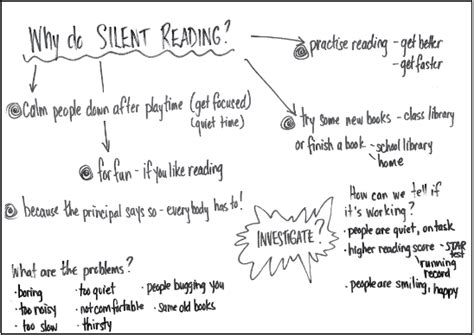 Why do SILENT READING?
practise reading - get better
- get faster
Calm people down after playtime (get focused)
(quiet time)
try some new books - class library
or finish a book - school library
home
for fun - if you like reading
because the principal says so - everybody has to!
INVESTIGATE?
How can we tell if
it's working?
· people are quiet, on task
· higher reading score - STAR test
running
record
· people are smiling, happy
What are the problems?
· boring
· too noisy
· too slow
· too quiet
· not comfortable
· thirsty
· people bugging you
· same old books